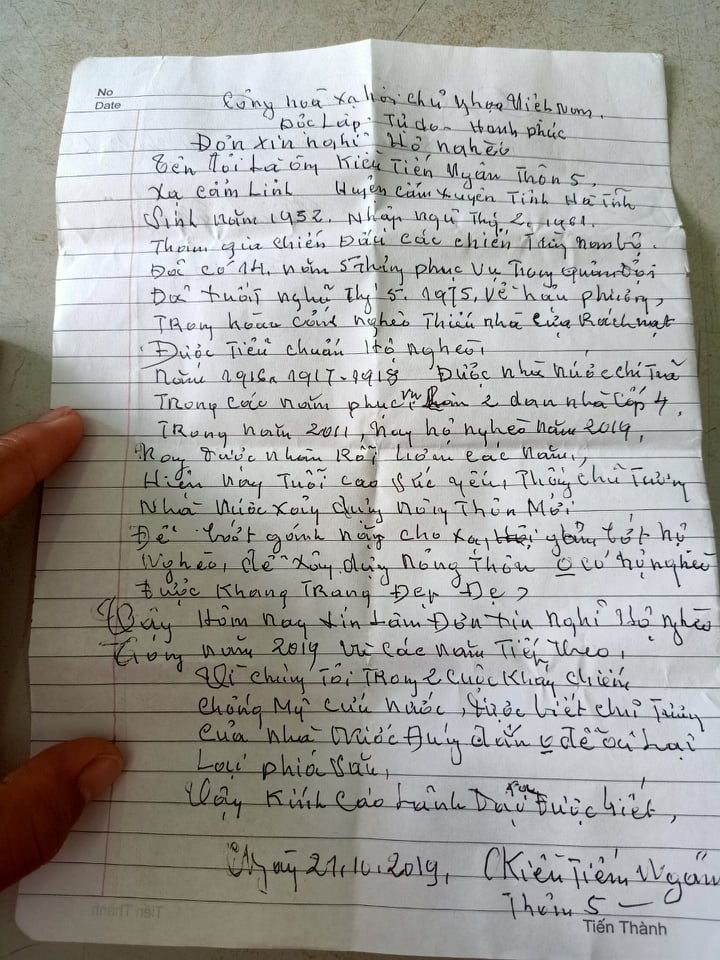 No
Date
Cộng hoà xạ hội chủ nghĩa Việt Nam.
Độc Lập - Tự do - Hạnh phúc
Đơn xin nghỉ Hộ nghèo
Tên tôi là ông Kiều Tiến Ngân Thôn 5,
Xạ Cẩm Lĩnh Huyện Cẩm Xuyên Tỉnh Hà Tĩnh
Sinh năm 1952. Nhập ngũ Thg 2. 1961.
Tham gia chiến Đấu các chiến Trường nam bộ.
Đã có 14 năm 5 tháng phục vụ Trong quân đội
Đến tuổi nghỉ Thg 5. 1975, về hậu phương,
TRong hoàn cảnh nghèo Thiếu nhà cửa Rách nát
Được Tiêu chuẩn Hộ nghèo,
Năm 1916, 1917-1918 Được nhà nước chi Trả
TRong các năm phục 2 dan nhà cấp 4,
TRong năm 2011, hay hộ nghèo năm 2019,
được nhận Rồi các năm,
Hiện nay Tuổi cao sức yếu, Thấy chủ Trương
Nhà Nước xây dựng nông Thôn Mới
Để bớt gánh nặng cho xạ, bớt hộ
Nghèo, để xây dựng nông thôn o có hộ nghèo
Được Khang TRang Đẹp Đẹ,
Vậy Hôm nay xin làm Đơn xin nghỉ Hộ nghèo
Trong năm 2019 và các năm Tiếp theo,
Vì chúng Tôi TRong 2 cuộc Kháng chiến
chống Mỹ cứu nước, được biết chủ Trương
của nhà Nước Đúng đắn o để ai lại
Lại phía sau,
Vậy Kính cáo Lãnh Dạo Được biết,
Ngày 21.10.2019, (Kiều Tiến Ngân
Thôn 5 —
Tiến Thành
Tiến Thành